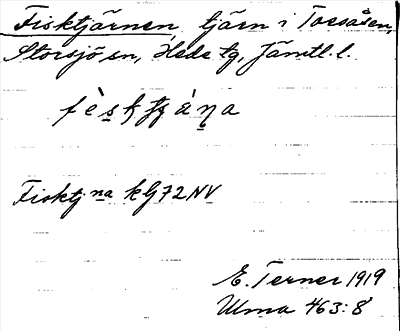 Fisktjärnen, tjärn i Tossåsen,
Storsjö sn, Hede tg, Jämtl. l.
Fisktj na kbj 72 NV
E. Terner 1919
Ulma 463:8